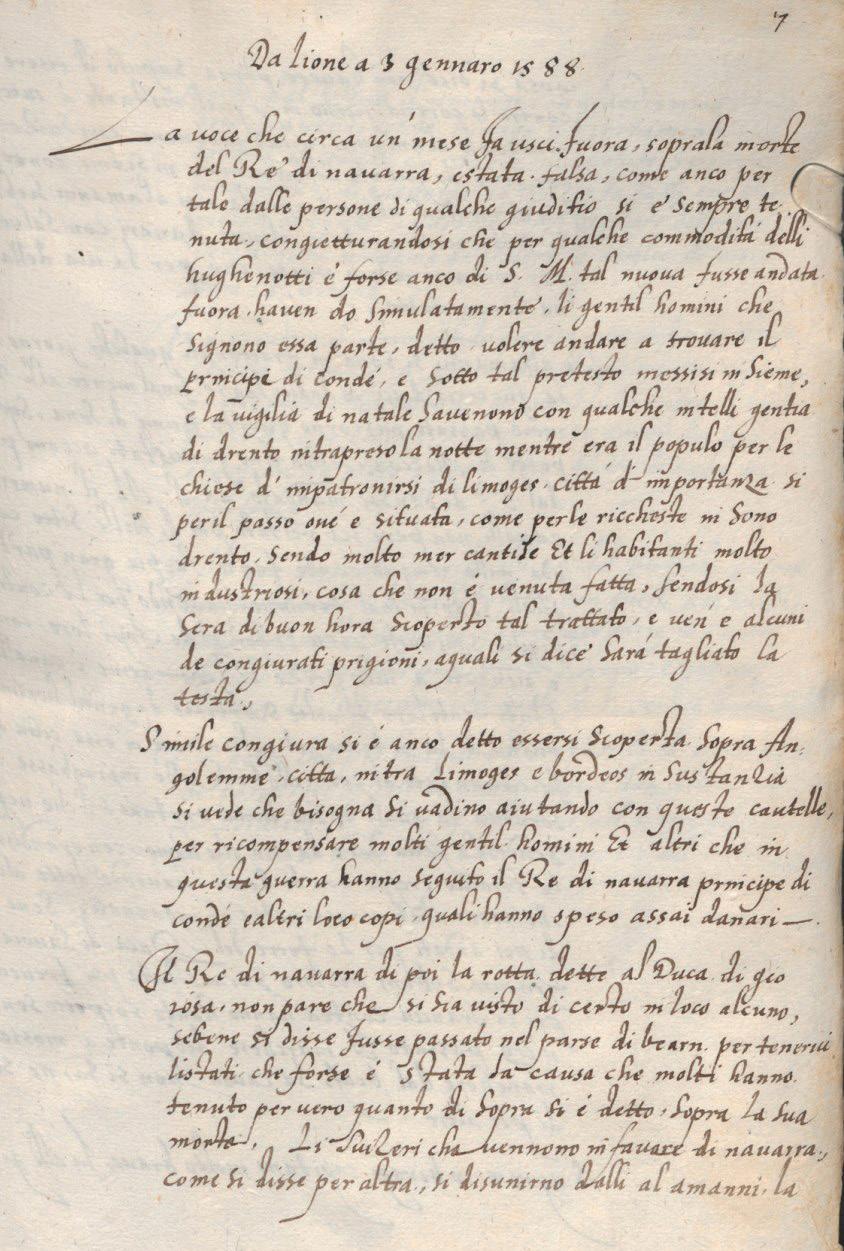 7
Da lione a 3 gennaro 1588
La voce che circa un' mese fa usci fuora, sopra la morte
del Re di navarra, estata falsa, come anco per
tale dalle persone di qualche giuditio si e' sempre te
nuta, congietturandosi che per qualche commodità delli
hughenotti è forse anco di S. M. tal nuova fusse andata
fuora, haven do simulatamente, li gentil homini che
signono essa parte, detto volere andare a trouare il
principe di condé, e sotto tal pretesto messisi insieme,
e la vigilia di natale savenono con qualche intelli gentia
di drento intrapreso la notte mentre era il populo per le
chiese d' inpatronirsi di limoges, città d' inportanza si
per il passo oue e situata, come per le riccheste ni sono
drento, sendo molto mer cantile Et li habitanti molto
industriosi, cosa che non é venuta fatta, sendosi la
sera di buon hora scoperto tal trattato, e ven' e alcuni
de congiurati prigioni, a quali si dice sarà tagliato la
testa,
Simile congiura si é anco detto essersi scoperta sopra An,
golemme, citta, nitra Limoges e bordeos in sustanzia
si vede che bisogna si uadino aiutando con queste cautelle,
per ricompensare molti gentil homini Et altri che in
questa guerra hanno seguito il Re di nauarra principe di
condé e altri loro copi quali hanno speso assai danari —
Il Re di nauarra di poi la rotta dette al Duca di gio
iosa, non pare che si sia visto di certo in loco alcuno,
sebene si disse fusse passato nel paese di bearn per tenerui
listati che forse é stata la causa che molti hanno
tenuto per vero quanto di sopra si é detto, sopra la sua
morte. Li Suizeri che vennono in favore di nauarra,
come si disse per altra, si disunirno dalli al amanni, la